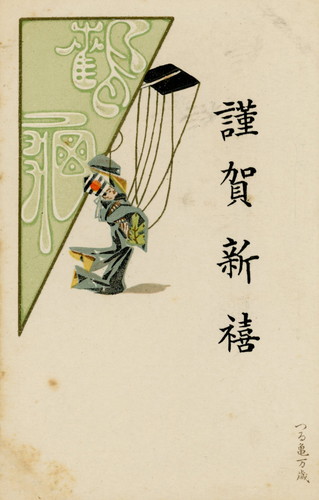 謹賀新禧
つる亀万歳